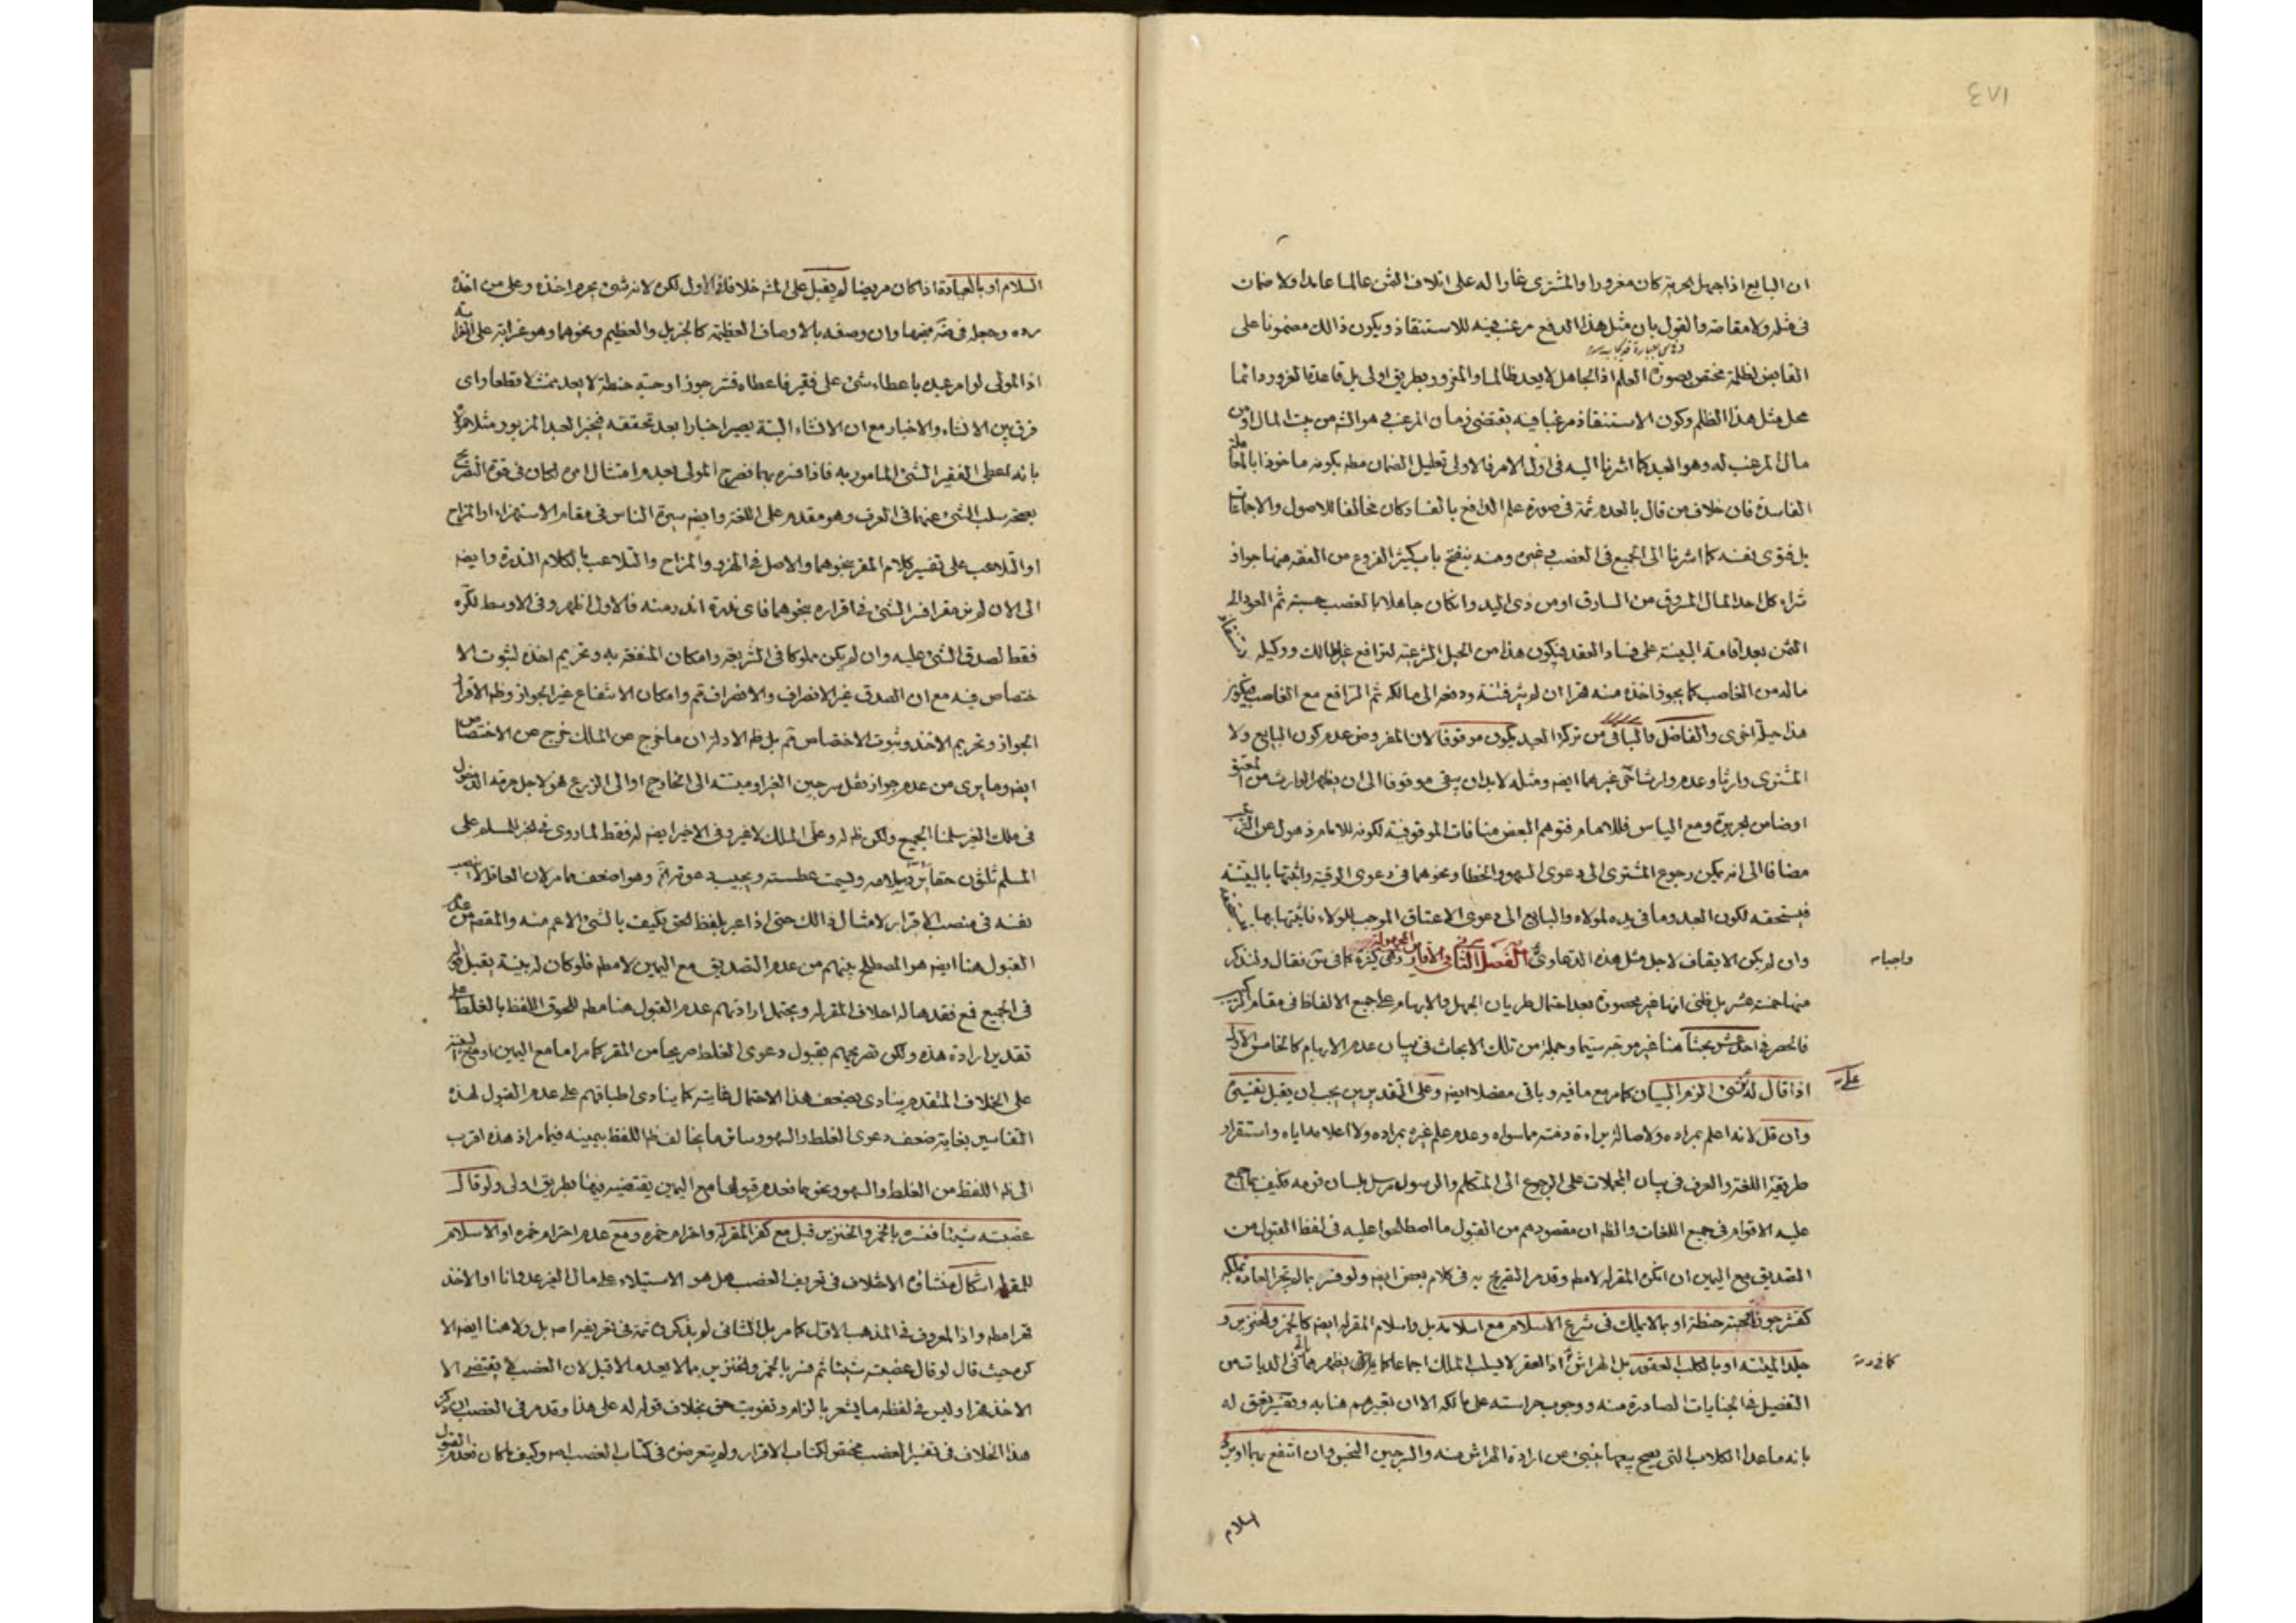 ان البايع اذا جهل الحرية كان مغرورا والمشترى غارا له على اتلاف الثمن عالما عامدا ولا ضمان
فى مثله ولا مقاصة والقول بان مثل هذا الدفع مرغب فيه للاستنقاذ ويكون ذالك مضمونا على
القابض لظلمه مختص بصورة العلم اذ الجاهل لا يعد ظالما والمغرور بطريق اولى بل قاعدة الغرور دائما
محل مثل هذا الظلم وكون الاستنقاذ مرغبا فيه يقتضى زمان المرغب هو الله من بيت المال او من
مال المرغب له وهو العبد كما اشرنا اليه فى اول الامر فالاولى تعليل الضمان مطه بكونه ماخوذا بالمعاملة
الفاسدة فان خلاف من قال بالعدم ثمة فى صورة علم الدافع بالفساد كان مخالفا للاصول والاجماعات
بل فتوى نفسه كما اشرنا الى الجميع فى الغصب وغيره ومنه ينفتح باب كثير الفروع من الفقه منها جواز
شراء كل احد المال المسروق من السارق او من ذى اليد وان كان جاهلا بالغصب حسبة ثم العود الى
الثمن بعد اقامة البينة على فساد العقد فيكون هذا من الحيل الشرعية لترافع غير المالك ووكيله
ماله من الغاصب كما يجوز اخذه منه قهرا ان لم يثر فتنة ودفعه الى مالكه ثم الترافع مع الغاصب فيكون
هذا حيلة اخرى والفاضل والباقى من تركة العبد يكون موقوفا لان المفروض عدم كون البايع ولا
المشترى وارثا وعدم وارث اخر غيرهما ايضه ومثله لابد ان يبقى موقوفا الى ان يظهر الوارث من المعتق
او ضامن لجريرة ومع الياس فللامام فتوهم البعض منافات الموقوفية لكونه للامام ذهول عن
مضافا الى انه يمكن رجوع المشترى الى دعوى السهو والخطا ونحوهما فى دعوى الرقية واثبتها بالبينة
فيستحقه لكون العبد وما فى يده لمولاه والبايع الى دعوى الاعتاق الموجب للولاء فاثبتها بها
وان لم يكن الايقاف لاجل مثل هذه الدعاوى الفصل الثانى فى الاقارير المجهولة وهى كثيرة كما فى س نقال ولنذكر
واجبات
منها خمسة عشر بل قلنى انها غير محصورة بعد احتمال طريان الجهل والابهام على جميع الالفاظ فى مقام
فالحصر فى احد عشر بحثا هنا غير موجه سيما وجملة من تلك الابحاث فى بيان عدم الابهام كالخامس الاول
اذا قال له على شىء الزم البيان كما مر مع ما فيه وباقى مفصلا ايضه وعلى التقديرين يجب ان يقبل تفسيره
وان قل لانه اعلم بمراده ولاصالة براءة ذمته مما سواه وعدم علم غيره بمراده ولا اعلامه اياه واستقرار
طريقة اللغة والعرف فى بيان المجملات على الرجوع الى المتكلم والرسول مرسل بلسان قومه فكيف بما اجمع
عليه الاقوام فى جميع اللغات والظه ان مقصودهم من القبول ما اصطلحوا عليه فى لفظ القبول من
التصديق مع اليمين ان انكر المقر له لا مطه وقد مر التصريح به فى كلام بعض ايضه ولو فسر بما لم تجر العادة بتملكه
كقشر جوزة او حبة حنطة او بما لا يملك فى شرع الاسلام مع اسلامه بل واسلام المقر له ايضه كالخمر والخنزير و
جلد الميتة او بالكلب العقور بل الهراش اذ العقر لا يسلب الملك اجماعا كما يظهر فى الديات من
التفصيل فى الجنايات الصادرة منه ووجوب حراسته على مالكه الا ان تعبيرهم هنا به
بانه ماعدا الكلاب التى يصح بيعها ينبئ عن ارادة الهراش منه والسرجين النجس وان انتفع بهما او برد
السلام
السلام او بالعيادة اذا كان مريضا لم يقبل على المشه خلافا فى الاول لكن لانه شىء يحرم اخذه وعلى من اخذه
رده وجعله فى ضمنها وان وصفه بالاوصاف العظيمة كالجزيل والعظيم ونحوهما وهو غرابة على الغرابة
اذ المولى لو امر عبده باعطاء شىء على فقير فاعطاه قشر جوز او حبة حنطة لا يعد ممتثلا قطعا واى
فرق بين الانشاء والاخبار مع ان الانشاء البتة يصير اخبارا بعد تحققه فيخبر العبد المزبور مثلا
بانه اعطى الفقير الشىء المامور به فاذا فسره بهما فصرح المولى بعدم امتثال امره لكان فى قوة التصريح
بصحة سلب الشىء عنهما فى العرف وهو مقدم على اللغة وايضه سيرة الناس فى مقام الاستهزاء او المزاح
او التلاعب على تفسير كلام المقر بنحوهما والاصل فى الهزء والمزاح والتلاعب بالكلام الندرة وايضه
الى الان لم نر مقرا فسر الشىء فى اقراره بنحوهما فاى ندرة اندر منه فالاول اظهر وفى الاوسط لكره
فقط لصدق الشىء عليه وان لم يكن مملوكا فى الشريعة وامكان المنفعة به وتحريم اخذه لثبوت الا
ختصاص فيه مع ان الصدق غير الانصراف والانصراف ثم وامكان الانتفاع غير الجواز وظه الاقرار
الجواز وتحريم الاخذ وثبوت الاختصاص ثم بل ظه الادلة ان ما خرج عن الملك خرج عن الاختصاص
ايضه وما يرى من عدم جواز نقل سرجين الغير وميتته الى الخارج او الى الزرع هو لاجل حرمة الدخول
فى ملك الغير سلمنا الجميع ولكن ظه له وعلى الملك لا غير وفى الاخير ايضه له فقط لما روى فى الخبر للمسلم على
المسلم ثلثون حقا يرد سلامه ويسمت عطسته ويجيب دعوته اه وهو اضعف مما مر لان العاقل لا ينصب
نفسه فى منصب الاقرار لامثال ذالك حتى اذا عبر بلفظ الحق فكيف بالشىء الاعم منه والمقصد من عدم
القبول هنا ايضه هو المصطلح بينهم من عدم التصديق مع اليمين لا مطه فلو كان له بينة يقبل
فى الجميع فمع فقدها له احلاف المقر له ويحتمل ارادتهم عدم القبول هنا مطه للحوق اللفظ بالغلط على
تقدير ارادة هذه ولكن تصريحهم بقبول دعوى الغلط صريحا من المقر كما مر اما مع اليمين او مع البينة
على الخلاف المتقدم ينادى بضعف هذا الاحتمال غايته كما ينادى اطباقهم على عدم القبول لهذه
التفاسير بغاية ضعف دعوى الغلط والسهو وسائر ما يخالف ظه اللفظ بيمينه فيما مر اذ هذه اقرب
الى ظه اللفظ من الغلط والسهو ونحوهما فعدم قبولها مع اليمين يقتضيه فيها بطريق اولى ولو قال
غصبته شيئا ففسره بالخمر والخنزير قبل مع كفر المقر له واحترام خمره ومع عدم احترام خمره او الاسلام
للمقر له اشكال منشاؤه الاختلاف فى تعريف الغصب هل هو الاستيلاء على مال الغير عدوانا او الاخذ
قهرا مطه واذا المعروف فى المذهب الاول كما مر بل الثانى لم يذكروه ثمة فى تعريفه اصه بل ولا هنا ايضه الا
كره حيث قال لو قال غصبته شيئا ثم فسر بالخمر والخنزير بما لا يعد مالا قبل لان الغصب لا يقتضى الا
الاخذ قهرا وليس فى لفظه ما يشعر بالزام وتفويت حق بخلاف قوله له على هذا وقد مر فى الغصب ان ذكر
هذا الخلاف فى تفسير الغصب مختص لكتاب الاقرار ولم يتعرض فى كتاب الغصب اصه وكيف كان فعدم القبول